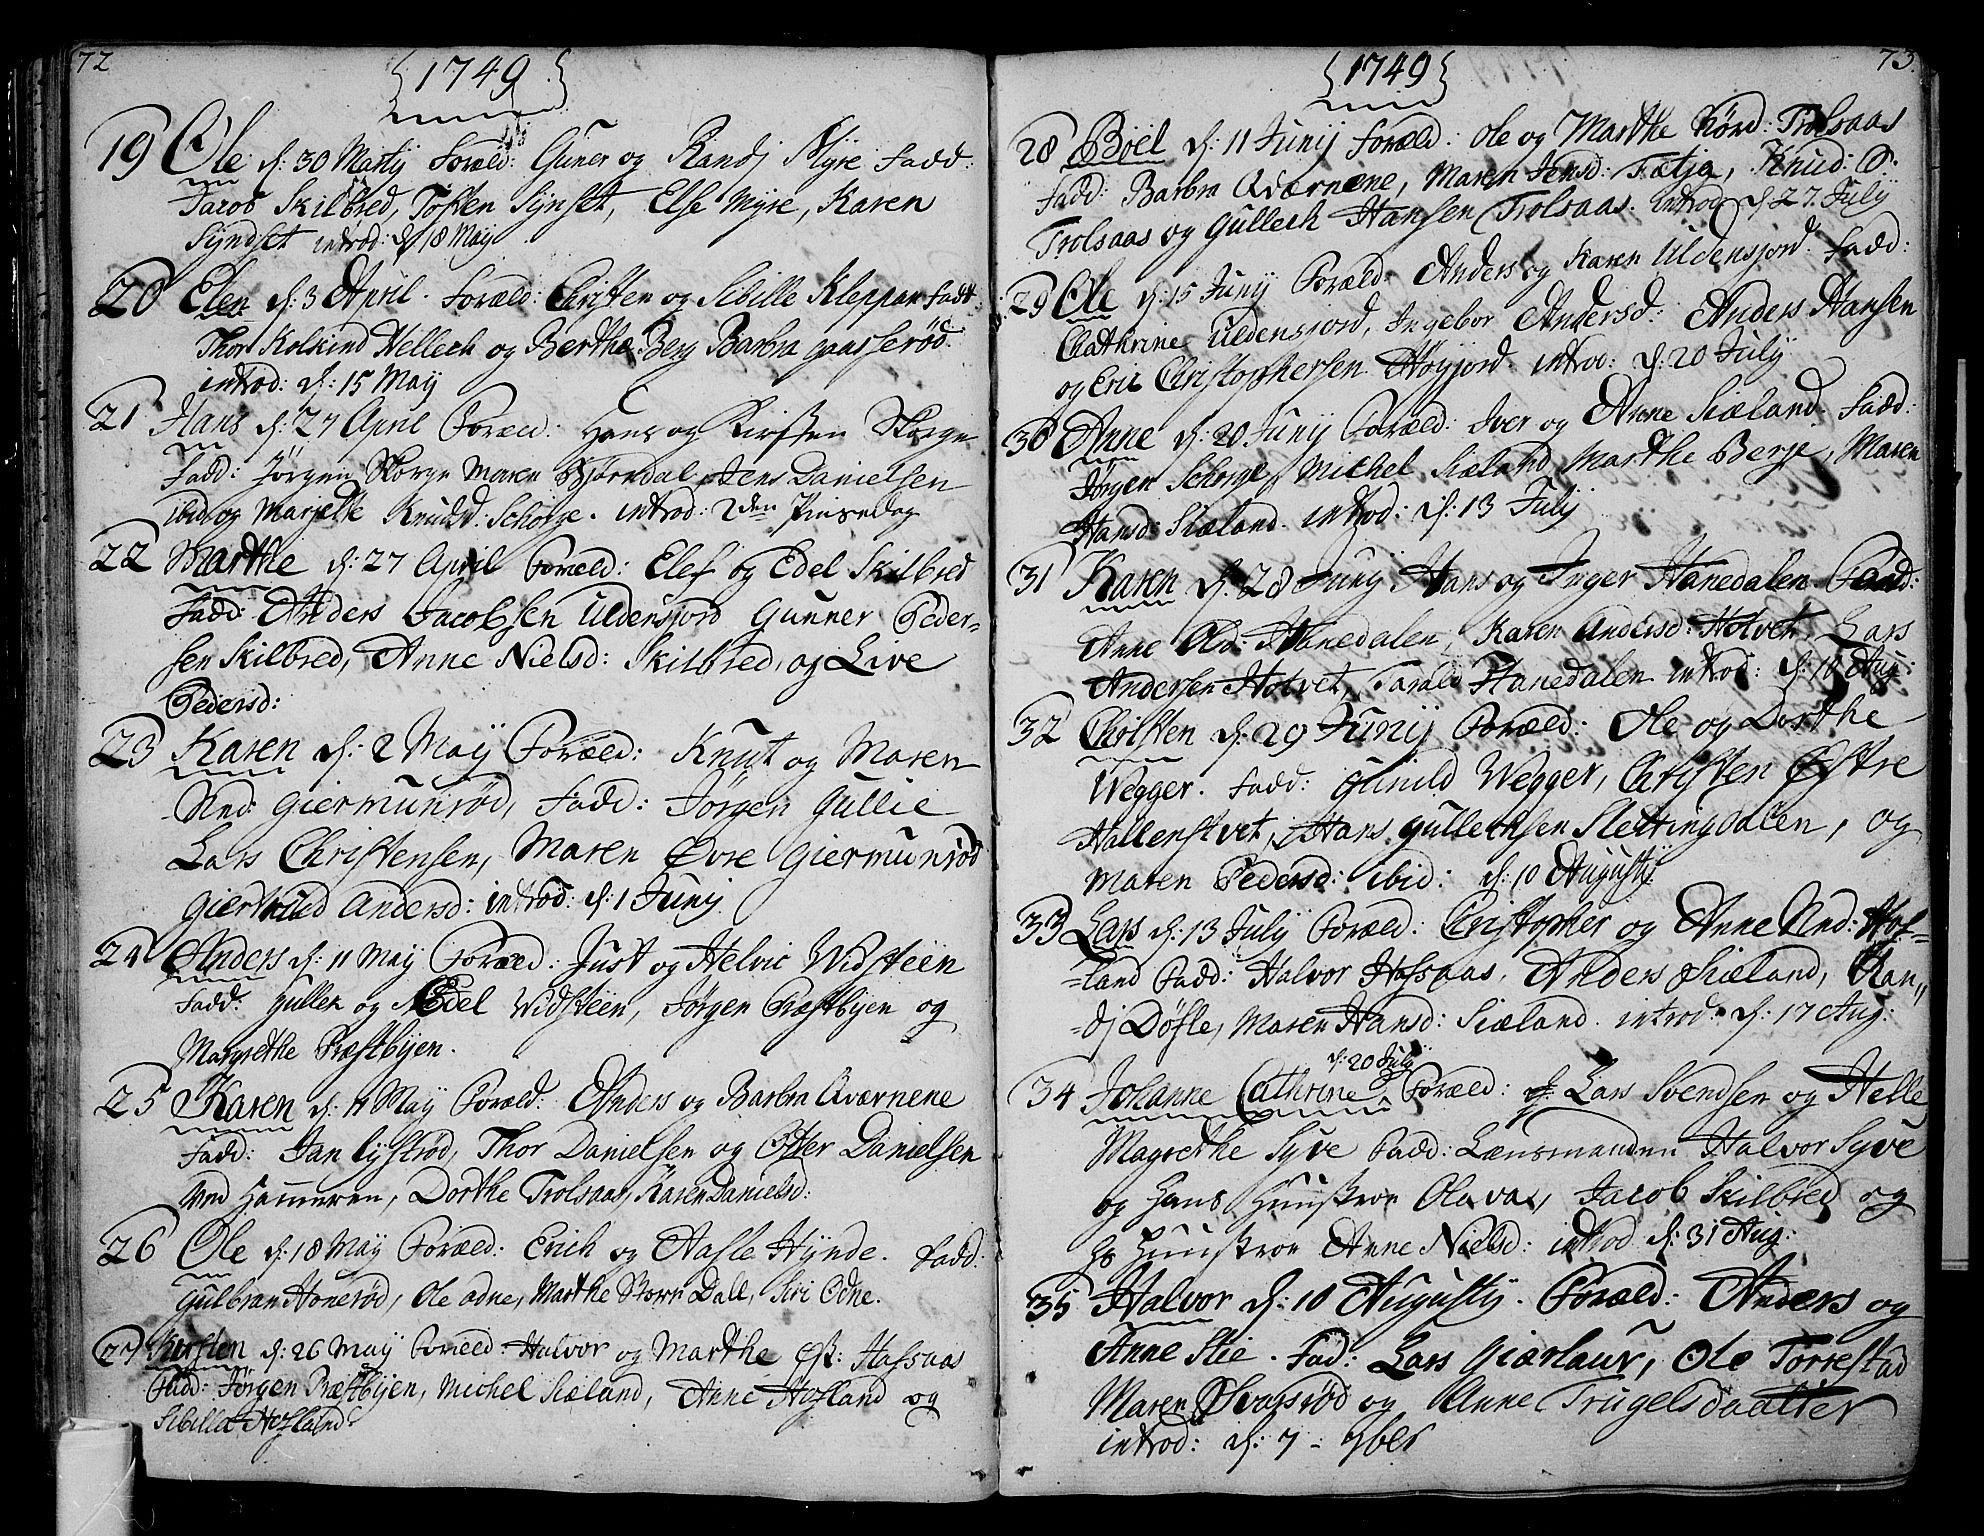 72
{1749}
19 Ole d: 30 Martij Foræld: Guner og Randj Myre Fadd:
Jacob Skilbred, Tosten Synset, Else Myre, Karen
Syndset introd: d 18 May
20 Elen d: 3 April. Foræld: Christen og Sibille Kleppan Fadd:
Thor Kolkind Hellech og Berthe Berg Barbra gaasserød.
introd: d: 15 May
21 Hans d: 27 April Foræld: Hans og Kirsten Skorge
Fadd: Jørgen Skorge Maren Biørndal, Jens Danielsen
ibid og Marjethe Knudsd: Schorge. introd: 2den Pinsedag
22 Marthe d: 27 April Foræld: Elef og Edel Skilbred
Fadd: Anders Jacobsen Uldensjord Gunner Peder-
sen Skilbred, Anne Nielsd: Skilbred, og Live
Pedersd:
23 Karen d: 2 May Foræld: Knut og Maren
Ned: giermunrød, Fadd: Jørgen Gullie
Lars Christensen, Maren Øvre giermunrød
giertrud Andersd: introd: d: 1 Junij
24 Anders d: 11 May Foræld: Just og Helvic Widsteen
Fadd: gullek og Edel Widsteen, Jørgen Præstbyen og
Margrethe Præstbyen.
25 Karen d: 11 May Foræld: Anders og Barbra Qværnene
Fadd: Jan Lystrød, Thor Danielsen og Ofter Danielsen
Ved Hammeren, Dorthe Trolsaas, Karen Danielsd:
26 Ole d: 18 May Foræld: Erich og Aasle Hynde. Fadd:
Gulbran Honerød, Ole odne, Marthe Storm Dall, Siri Odne.
27 Kersten d: 26 May Foræld: Halvor og Marthe Øst: Hassaas
Fadd: Jørgen Præstbyen, Michel Siæland, Anne Hofland og
Sibilla Hofland
73.
{1749}
28 Boel d: 11 Junij Foræld: Ole og Marthe Nord: Trolsaas
Fadd: Barbra Qværnene, Maren Jensd: Fætja, Knud: S:
Trolsaas og Gullech Hansen Trolsaas. introd d 27. July
29 Ole d: 15 Junij Foræld: Anders og Karen Uldensjord. Fadd:
Chathrine Uldensjord, Ingebor Andersd: Anders Hansen
og Eric Christophersen Høyjord. introd: d: 20 July
30 Anne d: 20 Junij Foræld: Iver og Anne Siæland. Fadd:
Jørgen Schorge, Michel Siæland Marthe Berge, Maren
Hansd: Siæland. introd: d: 13 July
31 Karen d: 28 Junij Hans og Inger Hanedalen Fadd:
Anne Hanedalen, Karen Andersd: Holvet, Lars
Andersen Holvet, Tarald Hanedalen introd: d: 10 Aug:
32 Cholsten d: 29 Junij Foræld: Ole og Dorthe
Wegger. Fadd: Gunild Wegger, Christen Østre
Hallenstvet, Hans gullechsen Slettingdalen, og
Maren Pedersd: ibid: d: 10 Augusti
33 Lars d: 13 July Foræld: Christopher og Anne Nnd: Hof-
=land Fadd: Halvor Hassaas, Anders Siæland, Ran,,
=dj Døfle, Maren Hansd: Siæland. introd: d: 17 Aug:
d: 20 July
34 Johanne Cathrine Foræld: Lars Svendsen og Helle
Magrethe Syve Fadd: Lænsmanden Halvor Syve
og Hans Huustroe Olava, Jacob Skilbred og
Hs Huustroe Anne Nielsd: introd d: 31 Aug:
35 Halvor d: 10 Augusty. Foræld: Anders og
Anne Slie. Fad: Lars Giærlaur, Ole Torrestad
Maren Ovasrød og Anne Trugelsdaatter
introd: d: 7 - 7ber